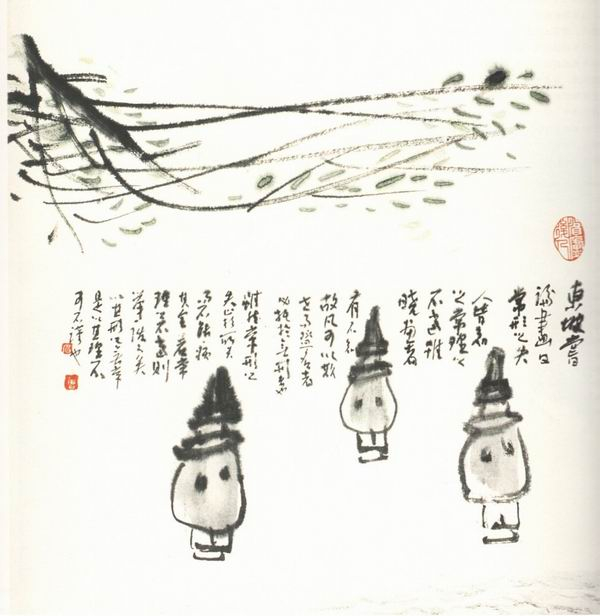 東坡嘗
論畫曰
常形之失
人皆知
之常理之
不當雖
曉畫者
有不知
故凡可以欺
世而取名者
必託於無形者也
雖然常形之
失止於所失
而不能病
其全若常
理之不當則
舉廢之矣
以其形之無常
是以其理不
可不謹也